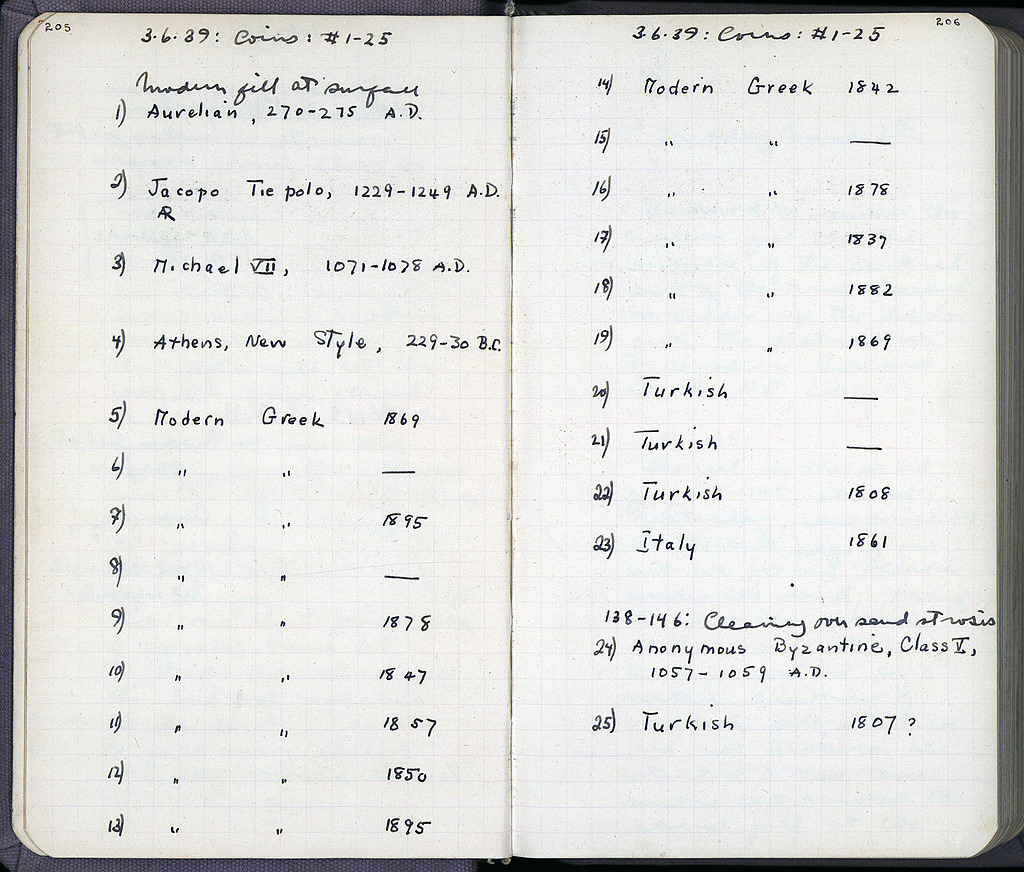 205
3.6.39: Coins: #1-25
Modern fill at surface
1) Aurelian, 270-275 A.D.
2) Jacopo Tiepolo, 1229-1249 A.D.
AR
3) Michael VII, 1071-1078 A.D.
4) Athens, New Style, 229-30 B.C.
5) Modern Greek 1869
6) " " —
7) " " 1895
8) " " —
9) " " 1878
10) " " 1847
11) " " 1857
12) " " 1850
13) " " 1895
206
3.6.39: Coins: #1-25
14) Modern Greek 1842
15) " " —
16) " " 1878
17) " " 1837
18) " " 1882
19) " " 1869
20) Turkish —
21) Turkish —
22) Turkish 1808
23) Italy 1861
138-146: Cleaning over sand strosis
24) Anonymous Byzantine, Class V,
1057-1059 A.D.
25) Turkish 1807?